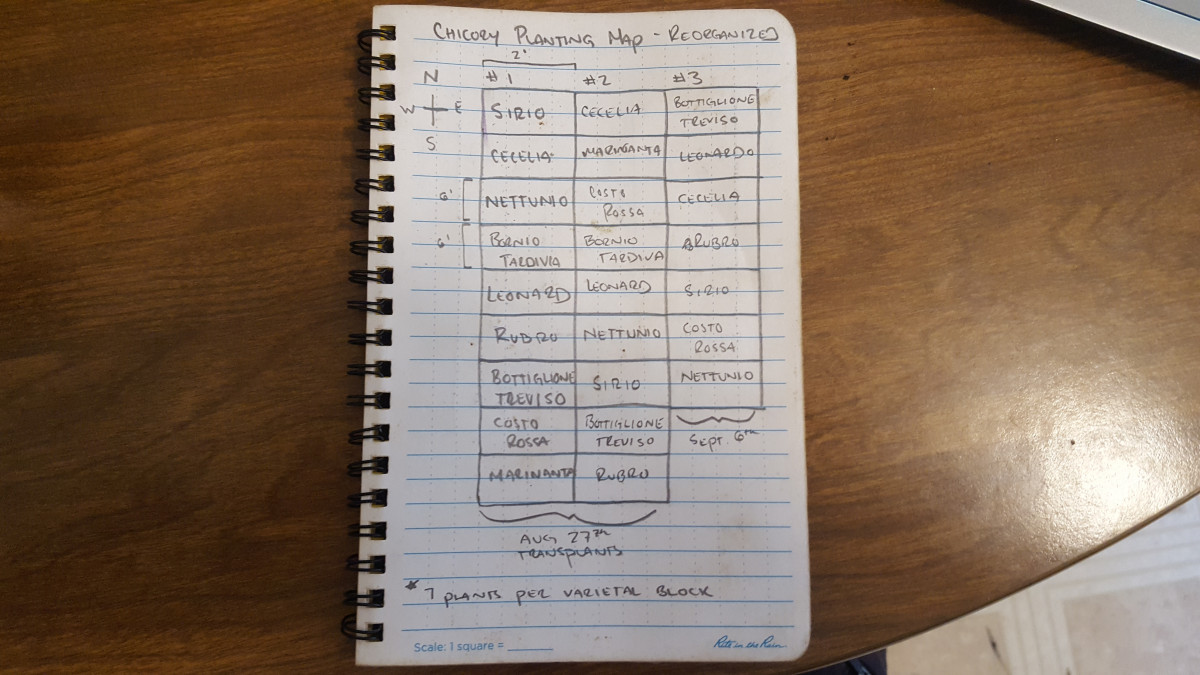 CHICORY PLANTING MAP - REORGANIZED
2'
N
#1 #2 #3
W E
S
SIRIO CECELIA BOTTIGLIONE
TREVISO
CECELIA MARINANTA LEONARDO
6' NETTUNIO COSTO CECELIA
ROSSA
6' BORNIO BORNIO RUBRO
TARDIVIA TARDIVA
LEONARD LEONARD SIRIO
RUBRO NETTUNIO COSTO
ROSSA
BOTTIGLIONE SIRIO NETTUNIO
TREVISO
COSTO BOTTIGLIONE
ROSSA TREVISO
SEPT. 6TH
MARINANTA RUBRO
AUG 27TH
TRANSPLANTS
* 7 PLANTS PER VARIETAL BLOCK
Scale: 1 square = ______
Rite in the Rain